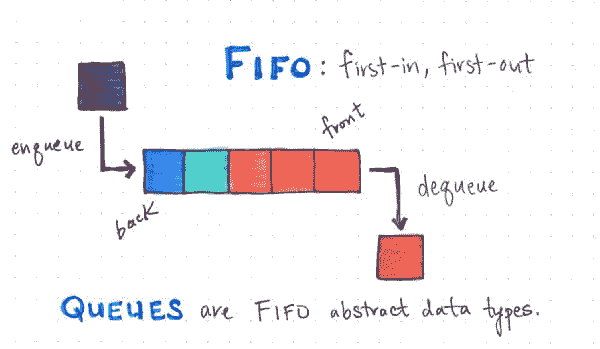 FIFO: first-in, first-out
enqueue
front
back
dequeue
QUEUES are FIFO abstract data types.